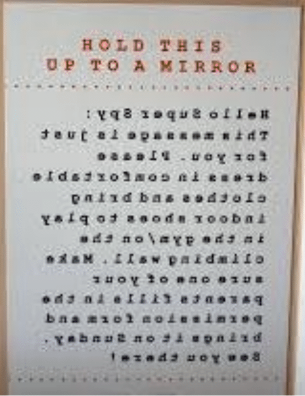 HOLD THIS
UP TO A MIRROR
Hello Super Spy:
This message is just
for you. Please
dress in comfortable
clothes and bring
indoor shoes to play
in the gym/on the
climbing wall. Make
sure one of your
parents fills in the
permission form and
brings it on Sunday.
See you there!